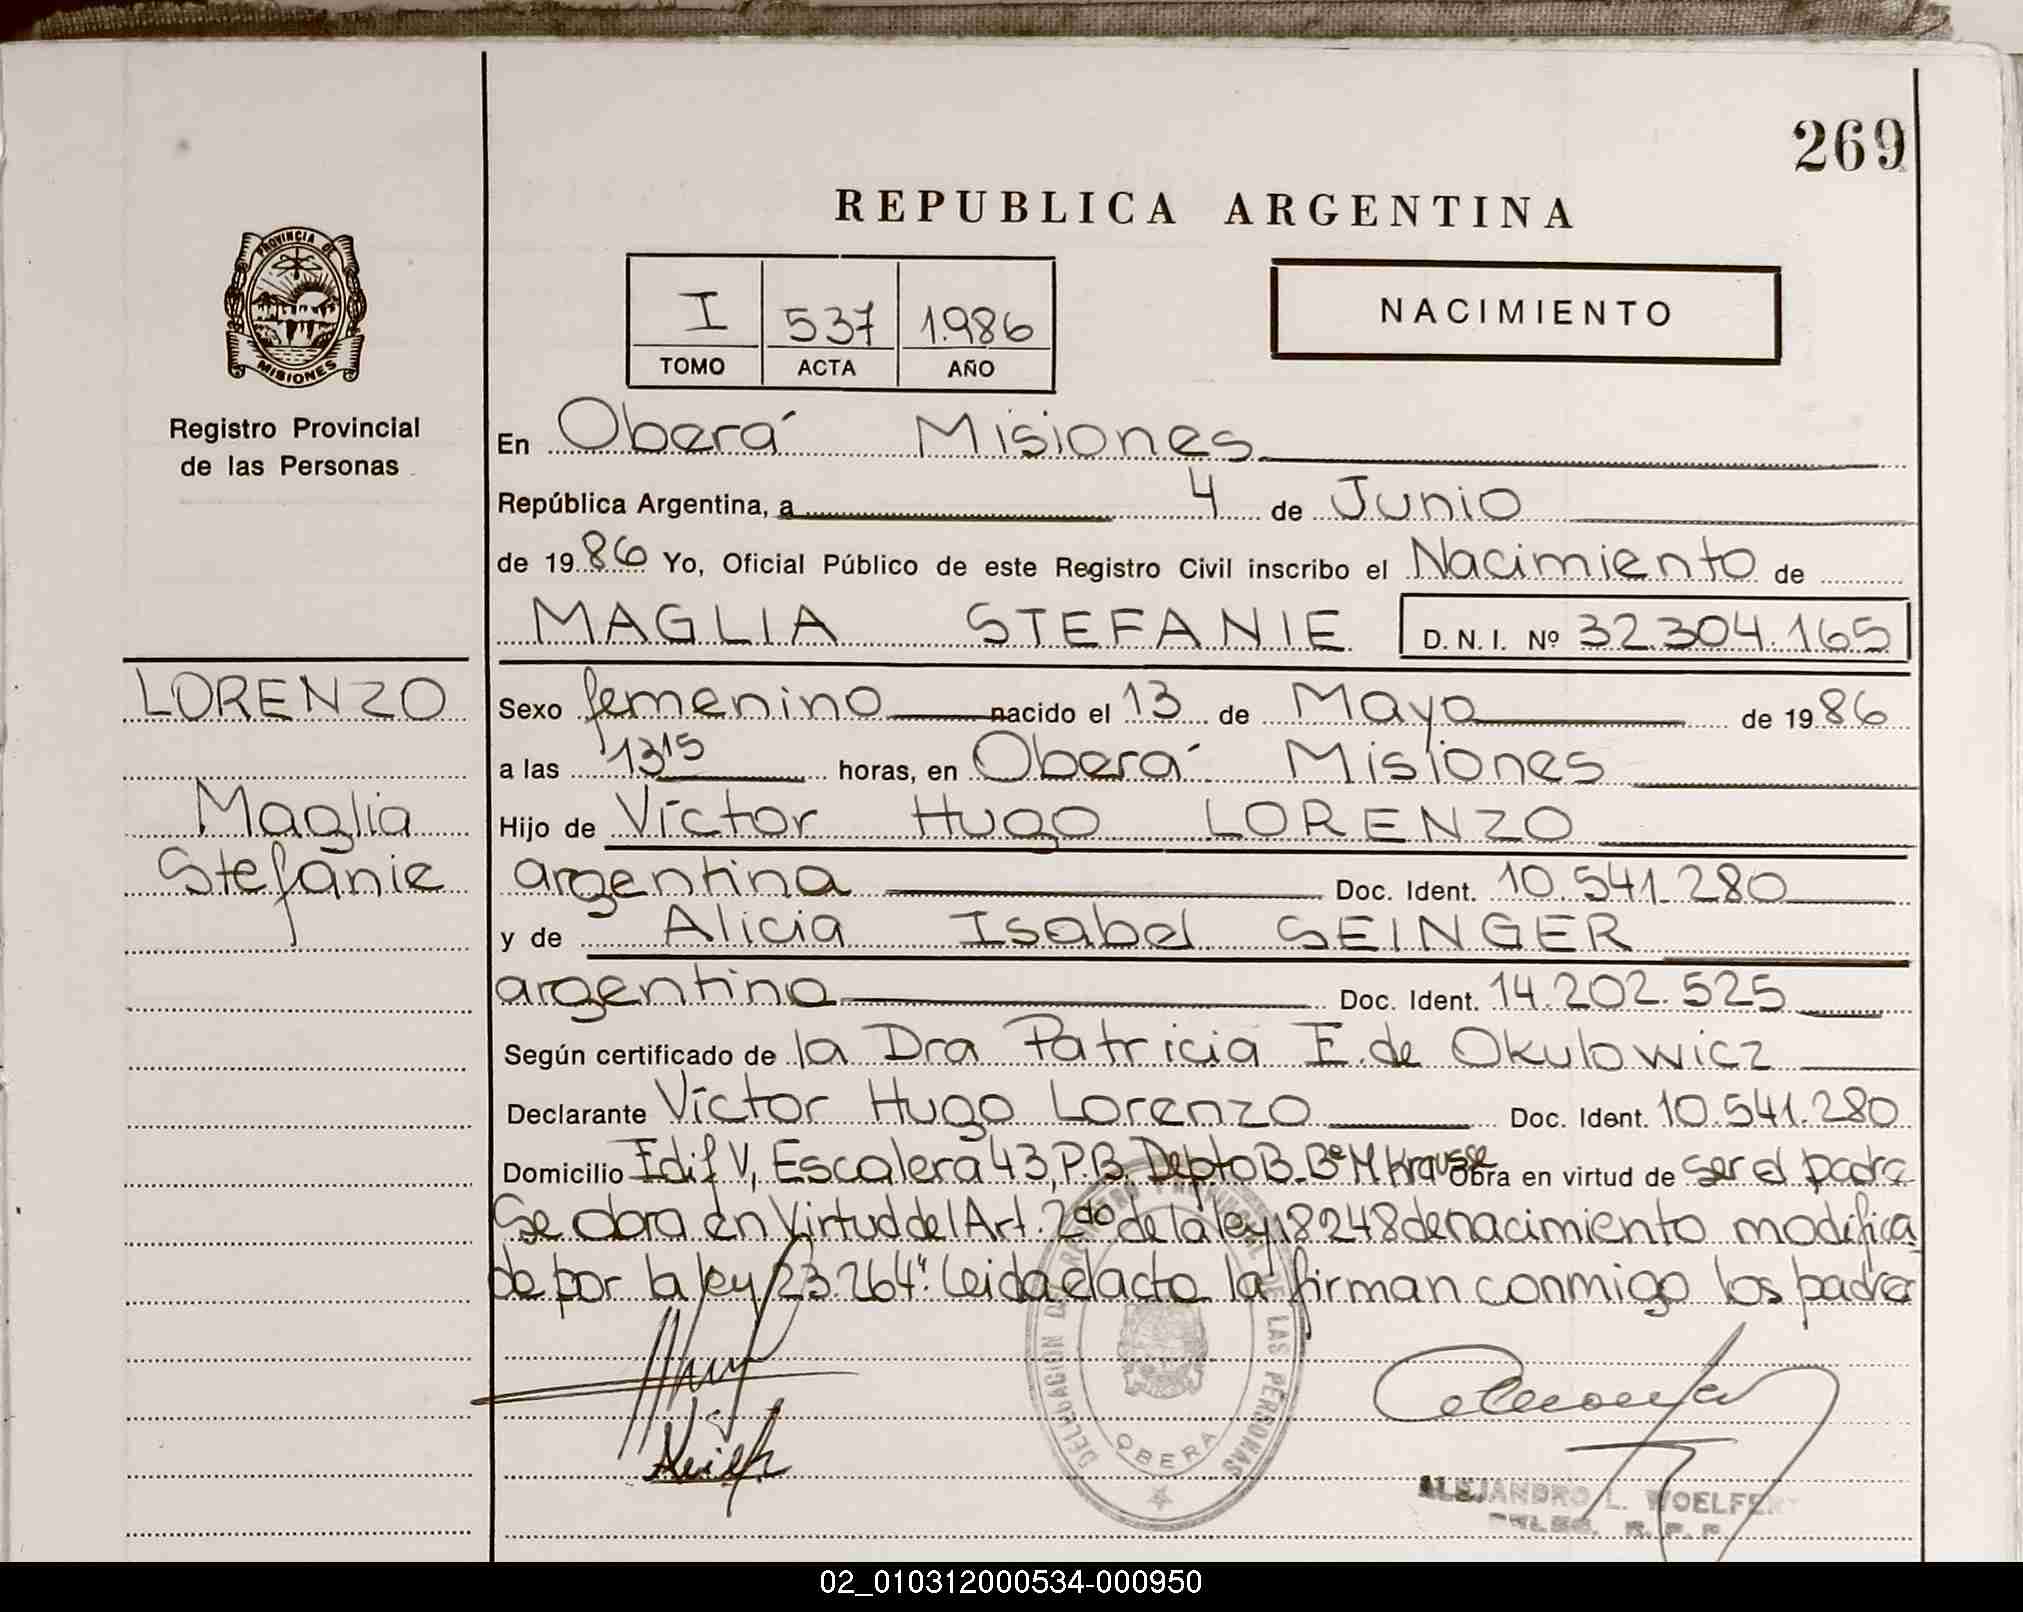 269
REPUBLICA ARGENTINA
PROVINCIA DE
MISIONES
I 537 1.986
TOMO ACTA AÑO
NACIMIENTO
Registro Provincial
de las Personas
En Oberá Misiones
República Argentina, a 4 de Junio
de 1986 Yo, Oficial Público de este Registro Civil inscribo el Nacimiento de
MAGLIA STEFANIE D.N.I. Nº 32.304.165
LORENZO
Maglia
Stefanie
Sexo femenino nacido el 13 de Mayo de 1986
a las 13 15 horas, en Oberá Misiones
Hijo de Víctor Hugo LORENZO
argentina Doc. Ident. 10.541.280
y de Alicia Isabel SEINGER
argentina Doc. Ident. 14.202.525
Según certificado de la Dra Patricia E. de Okulowicz
Declarante Víctor Hugo Lorenzo Doc. Ident. 10.541.280
Domicilio Edif V, Escalera 43, P.B. Depto B. Bº M Krausse Obra en virtud de ser el padre
Se obra en Virtud del Art. 2do de la ley 18248 de nacimiento modifica
do por la ley 23.264". Leida el acta la firman conmigo los padres
DELEGACION DEL REGISTRO PROVINCIAL DE LAS PERSONAS
OBERA
ALEJANDRO L. WOELFERT
DELEG. R. P. P.
02_010312000534-000950